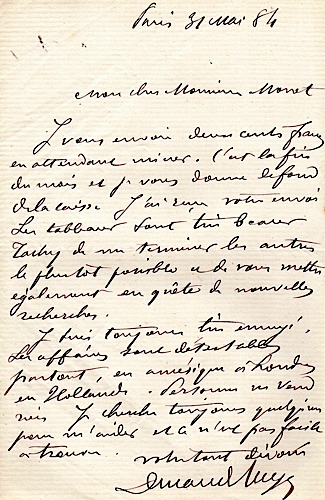 Paris 31 Mai 84
Mon cher Monsieur Monet
Je vous envoie deux cents francs
en attendant mieux. C'est la fin
du mois et je vous donne le fond
de la caisse. J'ai reçu votre envoi
Les tableaux sont très beaux
Tachez de me terminer les autres
le plutôt possible et de vous mettre
également en quête de nouvelles
recherches.
Je suis toujours très ennuyé,
Les affaires sont détestables
partout, en amérique à Londres
en Hollande. Personne ne vend
rien Je cherche toujours quelqu'un
pour m'aider et ce n'est pas facile
à trouver.
votre tout dévoué
Durand Ruel